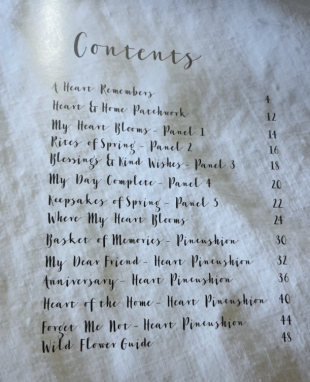 Contents
A Heart Remembers 4
Heart & Home Patchwork 12
My Heart Blooms - Panel 1 14
Rites of Spring - Panel 2 16
Blessings & Kind Wishes - Panel 3 18
My Day Complete - Panel 4 20
Keepsakes of Spring - Panel 5 22
Where My Heart Blooms 24
Basket of Memories - Pincushion 30
My Dear Friend - Heart Pincushion 32
Anniversary - Heart Pincushion 36
Heart of the Home - Heart Pincushion 40
Forget Me Not - Heart Pincushion 44
Wild Flower Guide 48